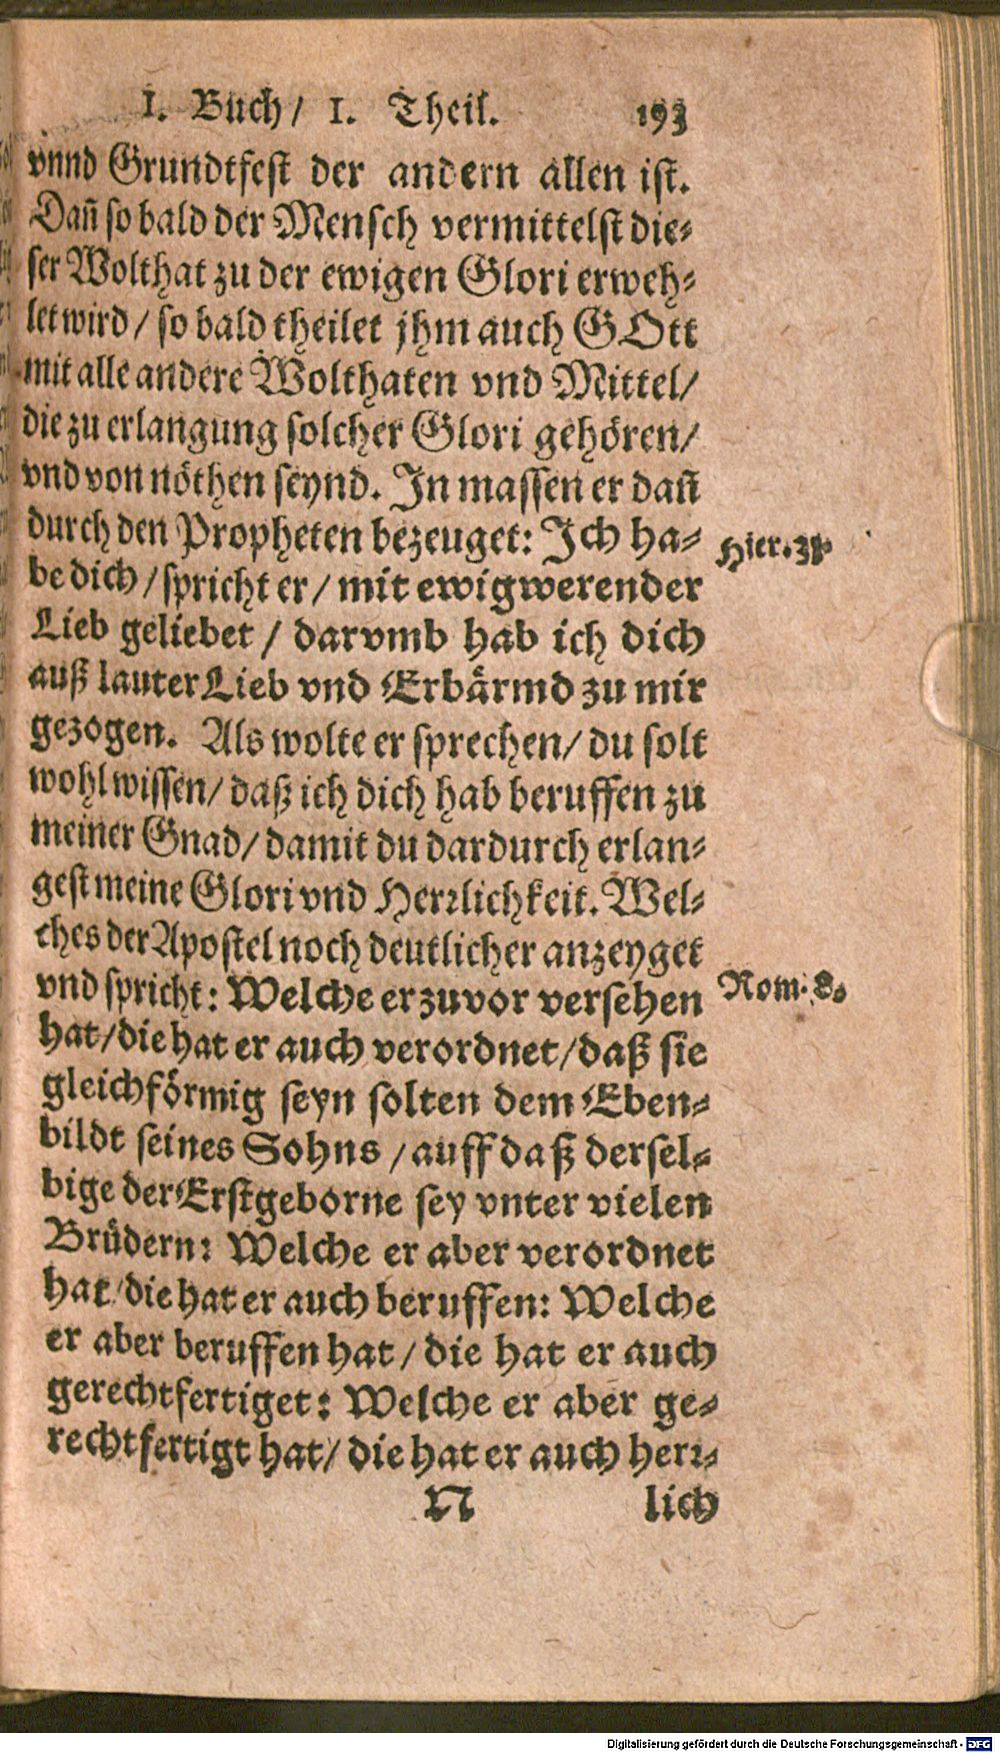 1. Buch/ 1. Theil. 193
vnnd Grundtfest der andern allen ist.
Dañ so bald der Mensch vermittelst die⸗
ser Wolthat zu der ewigen Glori erweh⸗
let wird/ so bald theilet jhm auch GOtt
mit alle andere Wolthaten vnd Mittel/
die zu erlangung solcher Glori gehören/
vnd von nöthen seynd. In massen er dañ
durch den Propheten bezeuget: Ich ha⸗ Hier. 31.
be dich/ spricht er/ mit ewigwerender
Lieb geliebet/ darvmb hab ich dich
auß lauter Lieb vnd Erbärmd zu mir
gezogen. Als wolte er sprechen/ du solt
wohl wissen/ daß ich dich hab beruffen zu
meiner Gnad/ damit du dardurch erlan⸗
gest meine Glori vnd Herꝛlichkeit. Wel⸗
ches der Apostel noch deutlicher anzeyget
vnd spricht: Welche er zuvor versehen Rom. 8.
hat/ die hat er auch verordnet/ daß sie
gleichförmig seyn solten dem Eben⸗
bildt seines Sohns/ auff daß dersel⸗
bige der Erstgeborne sey vnter vielen
Brüdern: Welche er aber verordnet
hat/ die hat er auch beruffen: Welche
er aber beruffen hat/ die hat er auch
gerechtfertiget: Welche er aber ge⸗
rechtfertigt hat/ die hat er auch herꝛ⸗
N lich
Digitalisierung gefördert durch die Deutsche Forschungsgemeinschaft - DFG